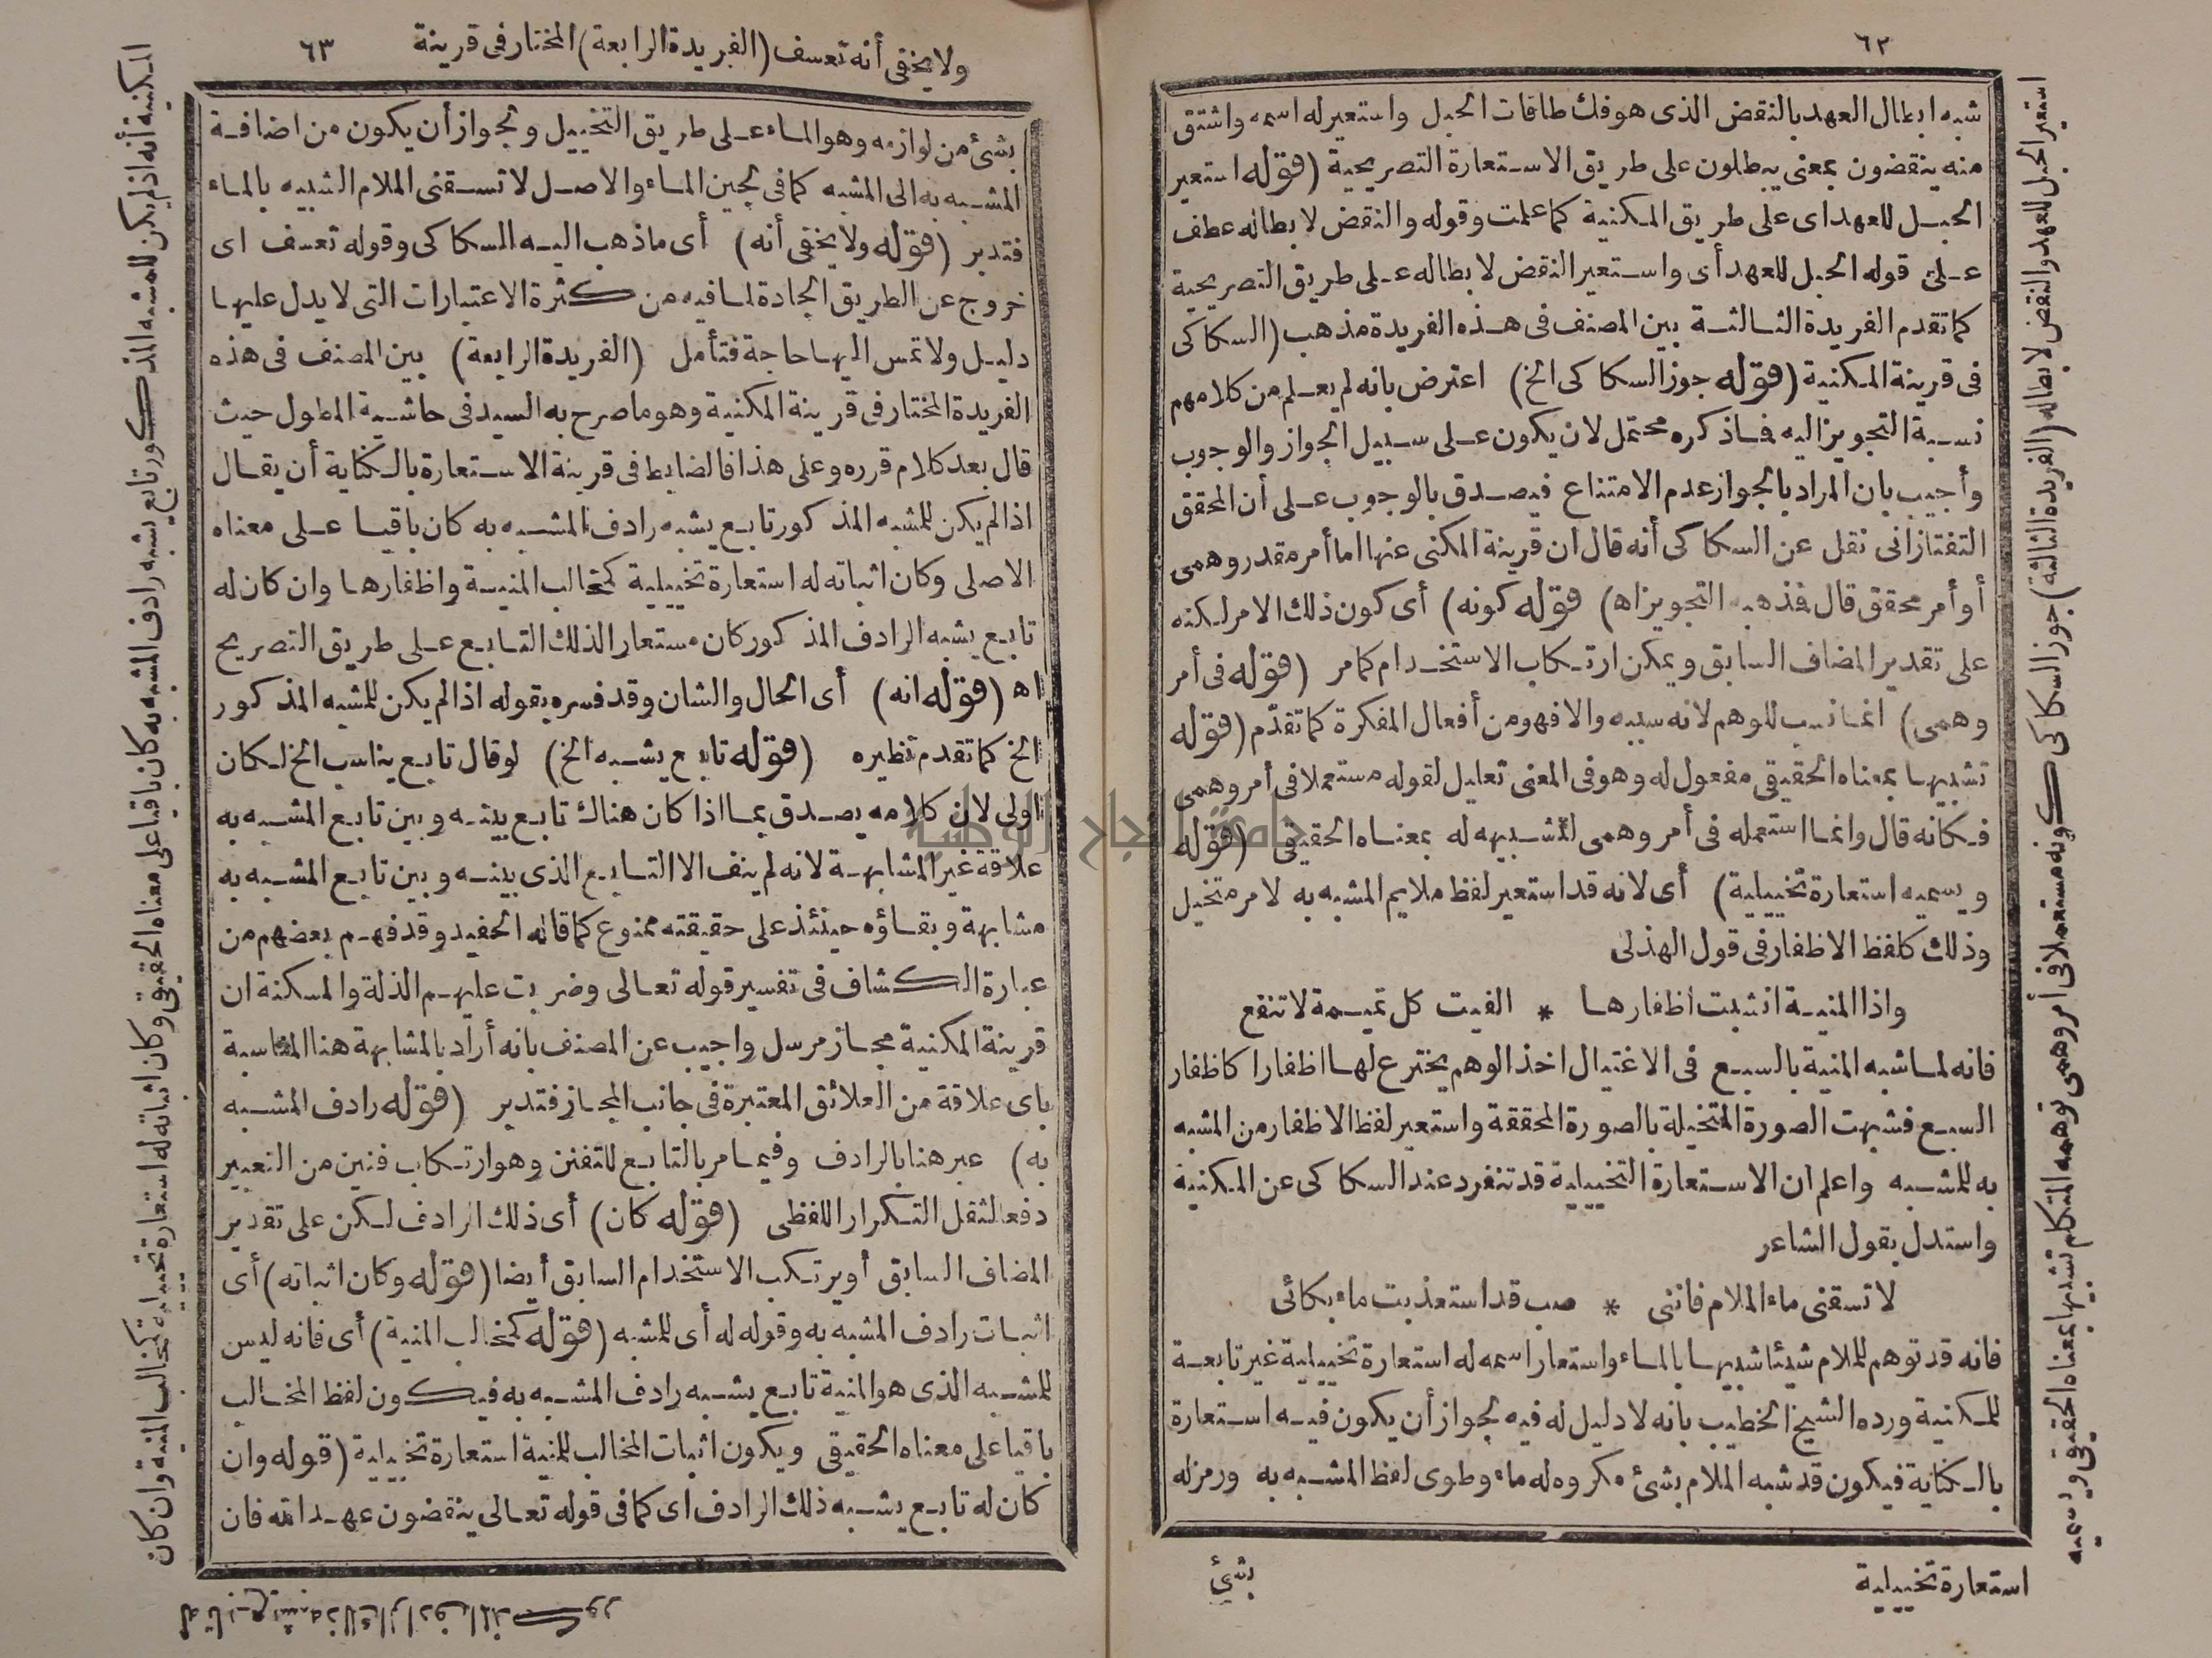 ٦٢
شبه ابطال العهد بالنقض الذى هو فك طاقات الحبل واستعير له اسمه واشتق
منه ينقضون بمعنى يبطلون على طريق الاستعارة التصريحية (قوله استعير
الحبل للعهد اى على طريق المكنية كما علمت وقوله والنقض لابطاله عطف
على قوله الحبل للعهد أى واستعير النقض لابطاله على طريق التصريحية
كما تقدم الفريدة الثالثة بين المصنف فى هذه الفريدة مذهب (السكاكى
فى قرينة المكنية (قوله جوز السكاكى الخ) اعترض بانه لم يعلم من كلامهم
نسبة التجويز اليه فاذكره محتمل لان يكون على سبيل الجواز والوجوب
وأجيب بان المراد بالجواز عدم الامتناع فيصدق بالوجوب على أن المحقق
التفتازانى نقل عن السكاكى أنه قال ان قرينة المكنى عنها اما أمر مقدر وهمى
أو أمر محقق قال فذهبه التجويز اه) قوله كونه) أى كون ذلك الامر لكنه
على تقدير المضاف السابق ويمكن ارتكاب الاستخدام كما مر (قوله فى أمر
وهمى) انما نسب للوهم لانه سببه والا فهو من أفعال المفكرة كما تقدّم (قوله
تشبيها بمعناه الحقيقى مفعول له وهو فى المعنى تعليل لقوله مستعملا فى أمر وهمى
فكانه قال وانما استعمله فى أمر وهمى لتشبيهه له بمعناه الحقيقى (قوله
ويسميه استعارة تخييلية) أى لانه قد استعير لفظ ملايم المشبه به لامر متخيل
وذلك كلفظ الاظفار فى قول الهذلى
واذا المنية انشبت أظفارها * الفيت كل تميمة لا تنفع
فانه لما شبه المنية بالسبع فى الاغتيال اخذ الوهم يخترع لها اظفارا كاظفار
السبع فشبهت الصورة المتخيلة بالصورة المحققة واستعير لفظ الاظفار من المشبه
به للمشبه واعلم ان الاستعارة التخييلية قد تنفرد عند السكاكى عن المكنية
واستدل بقول الشاعر
لا تسقنى ماء الملام فاننى * صب قد استعذبت ماء بكائى
فانه قد توهم للملام شيئا شبيها بالماء واستعار اسمه له استعارة تخييلية غير تابعة
للمكنية ورده الشيخ الخطيب بانه لا دليل له فيه لجواز أن يكون فيه استعارة
بالكناية فيكون قد شبه الملام بشئ مكروه له ماء وطوى لفظ المشبه به ورمز له
بشئ
استعير الحبل للعهد والنقض لابطاله (الفريدة الثالثة) جوز السكاكى كونه مستعملا فى أمر وهمى توهمه المتكلم تشبيها بمعناه الحقيقى ويسميه
استعارة تخييلية
ولا يخفى أنه تعسف (الفريدة الرابعة) المختار فى قرينة
٦٣
بشئ من لوازمه وهو الماء على طريق التخييل ولجواز أن يكون من اضافة
المشبه به الى المشبه كما فى لجين الماء والاصل لا تسقنى الملام الشبيه بالماء
فتدبر (قوله ولا يخفى أنه) أى ما ذهب اليه السكاكى وقوله تعسف اى
خروج عن الطريق الجادة لما فيه من كثرة الاعتبارات التى لا يدل عليها
دليل ولا تمس اليها حاجة فتأمل (الفريدة الرابعة) بين المصنف فى هذه
الفريدة المختار فى قرينة المكنية وهو ما صرح به السيد فى حاشية المطول حيث
قال بعد كلام قرره وعلى هذا فالضابط فى قرينة الاستعارة بالكناية أن يقال
اذا لم يكن للمشبه المذكور تابع يشبه رادف المشبه به كان باقيا على معناه
الاصلى وكان اثباته له استعارة تخييلية كمخالب المنية واظفارها وان كان له
تابع يشبه الرادف المذكور كان مستعارا لذلك التابع على طريق التصريح
اه (قوله انه) أى الحال والشان وقد فسره بقوله اذا لم يكن للمشبه المذكور
الخ كما تقدم نظيره (قوله تابع يشبه الخ) لو قال تابع يناسب الخ لكان
اولى لان كلامه يصدق بما اذا كان هناك تابع بينه وبين تابع المشبه به
علاقة غير المشابهة لانه لم ينف الا التابع الذى بينه وبين تابع المشبه به
مشابهة وبقاؤه حينئذ على حقيقته ممنوع كما قاله الحفيد وقد فهم بعضهم من
عبارة الكشاف فى تفسير قوله تعالى وضربت عليهم الذلة والمسكنة ان
قرينة المكنية مجاز مرسل واجيب عن المصنف بانه أراد بالمشابهة هنا المناسبة
باى علاقة من العلائق المعتبرة فى جانب المجاز فتدبر (قوله رادف المشبه
به) عبر هنا بالرادف وفيما مر بالتابع للتفنن وهو ارتكاب فنين من التعبير
دفعا لثقل التكرار اللفظى (قوله كان) أى ذلك الرادف لكن على تقدير
المضاف السابق أو يرتكب الاستخدام السابق أيضا (قوله وكان اثباته) أى
اثبات رادف المشبه به وقوله له أى للمشبه (قوله كمخالب المنية) أى فانه ليس
للمشبه الذى هو المنية تابع يشبه رادف المشبه به فيكون لفظ المخالب
باقيا على معناه الحقيقى ويكون اثبات المخالب للمنية استعارة تخييلية (قوله وان
كان له تابع يشبه ذلك الرادف اى كما فى قوله تعالى ينقضون عهد الله فان
المكنية أنه اذا لم يكن للمشبه المذكور تابع يشبه رادف المشبه به كان باقيا على معناه الحقيقى وكان اثباته له استعارة تخييلية كمخالب المنية وان كان
له تابع يشبه ذلك الرادف المذكور